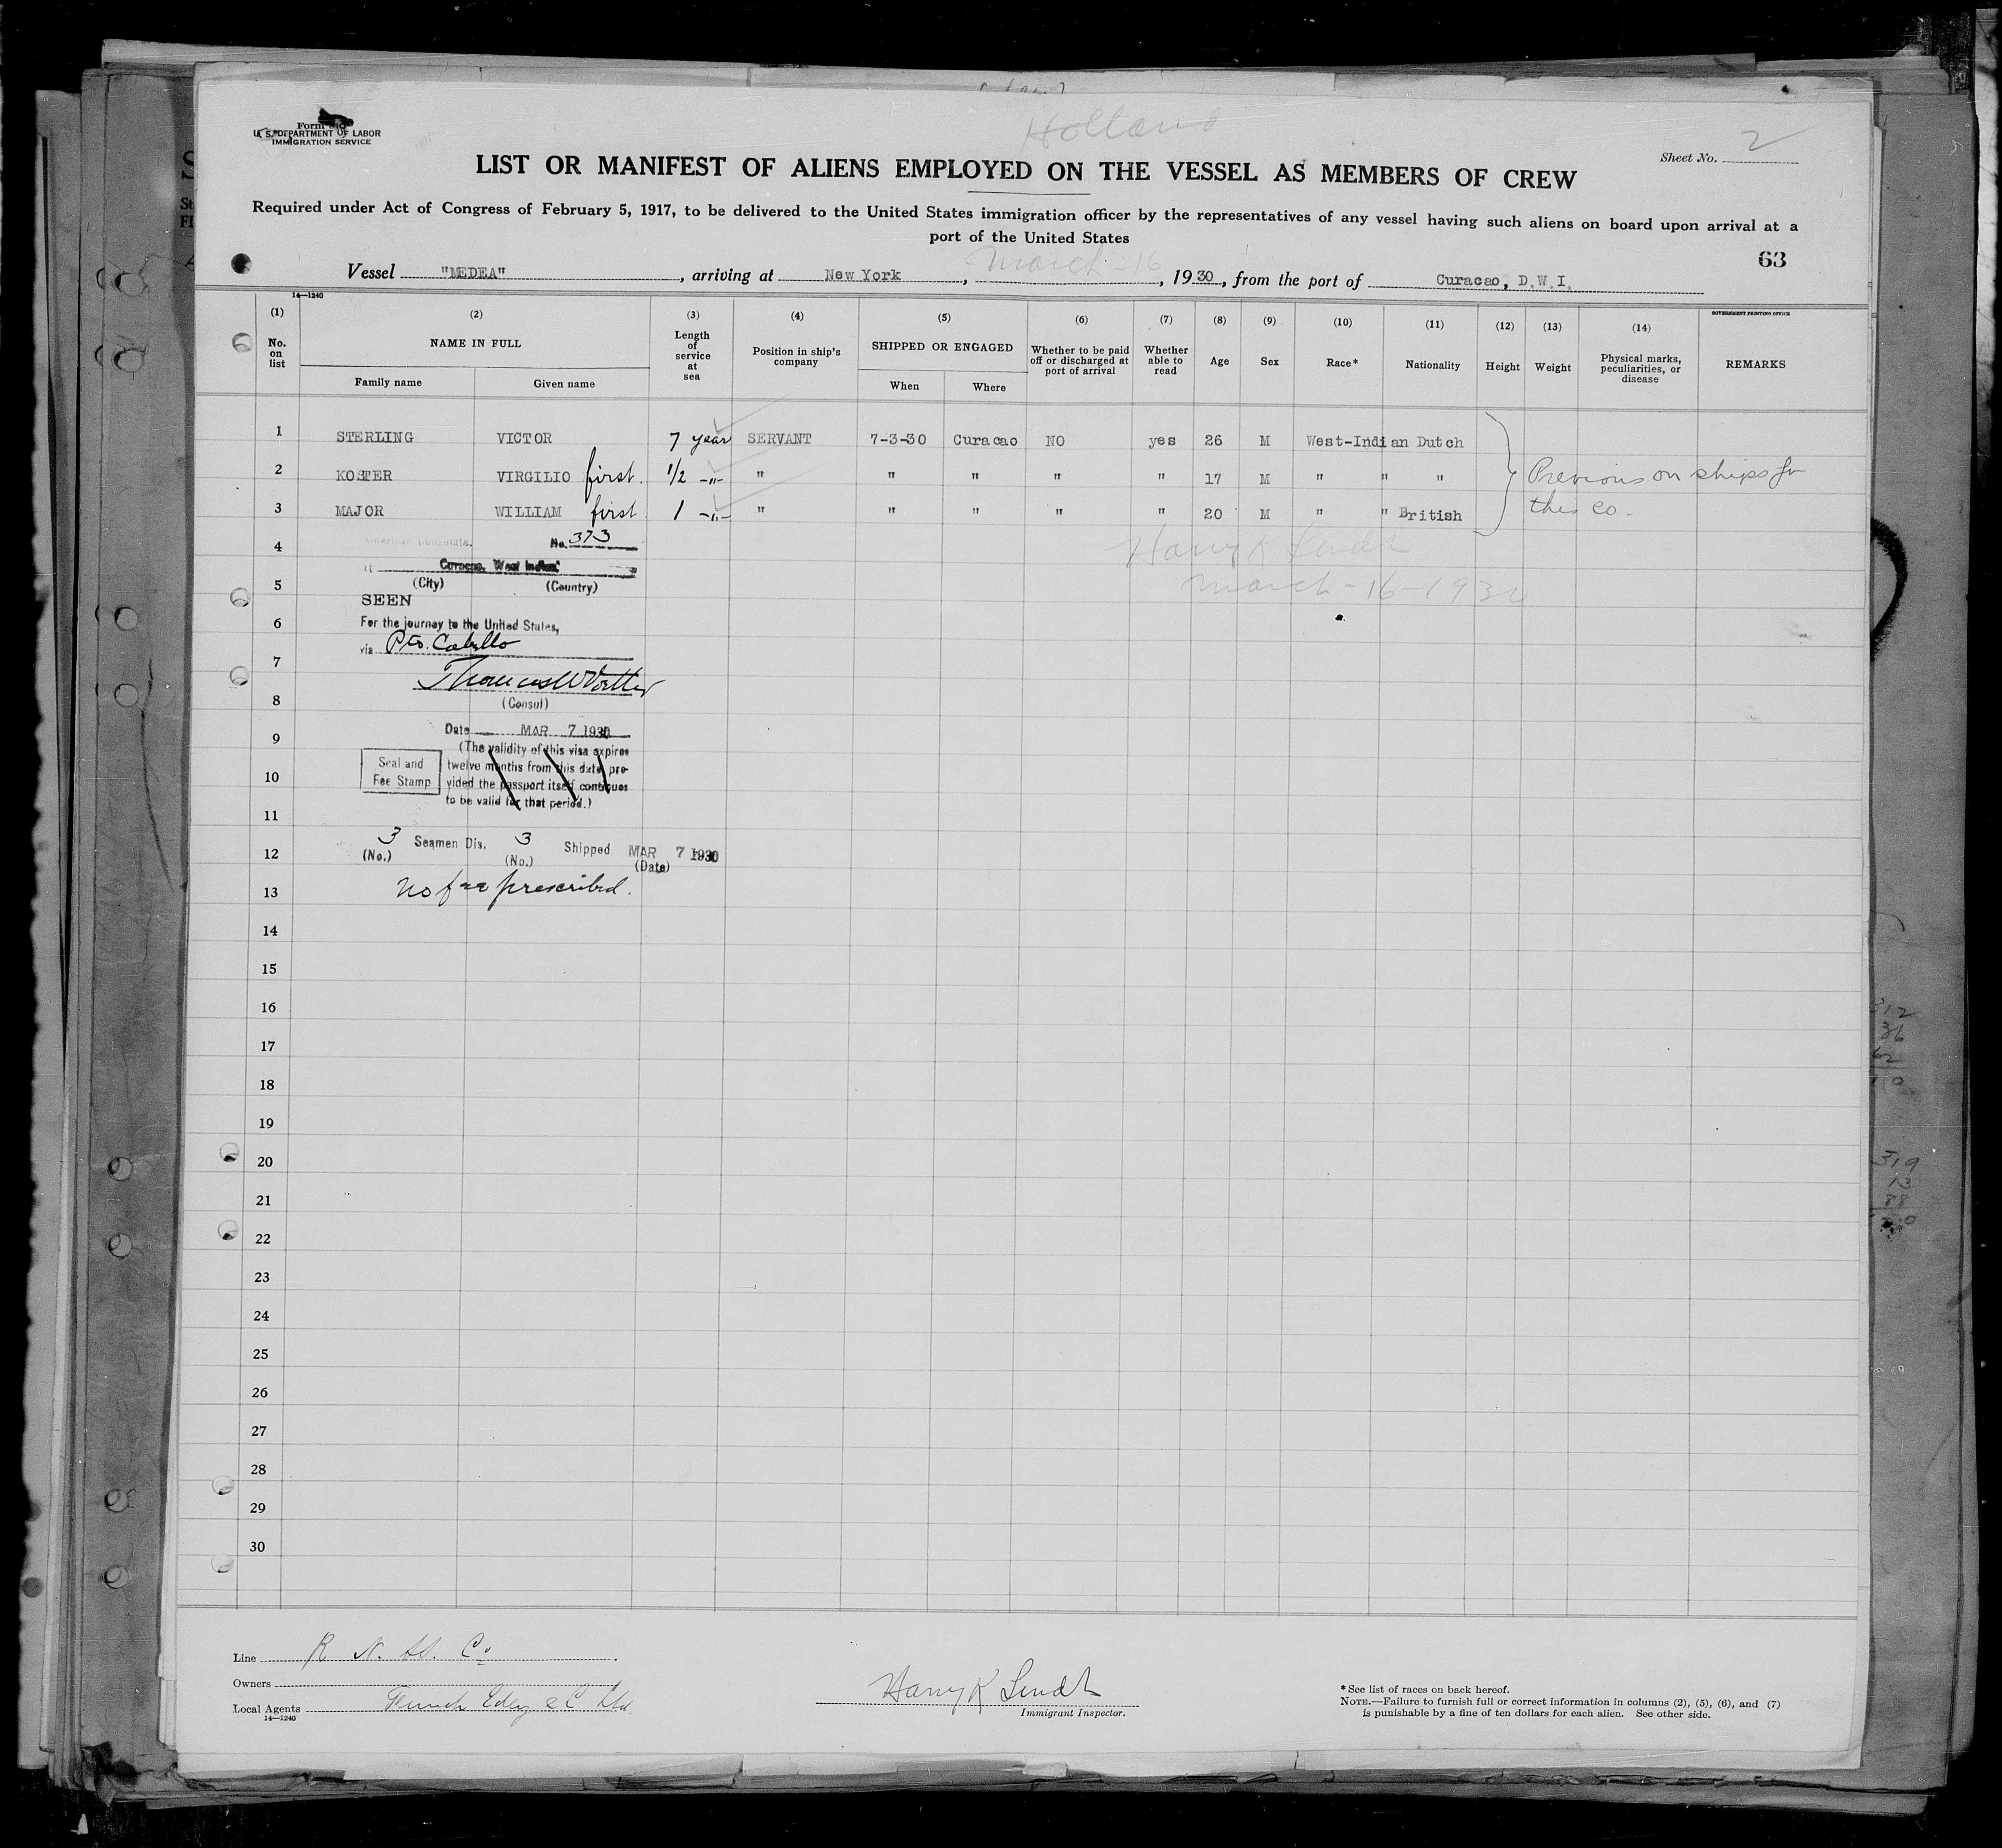 Holland
Form
U. S. DEPARTMENT OF LABOR
IMMIGRATION SERVICE
Sheet No. 2
LIST OR MANIFEST OF ALIENS EMPLOYED ON THE VESSEL AS MEMBERS OF CREW
Required under Act of Congress of February 5, 1917, to be delivered to the United States immigration officer by the representatives of any vessel having such aliens on board upon arrival at a
port of the United States
63
Vessel "MEDEA", arriving at New York, March-16, 1930, from the port of Curacao, D.W.I.
14—1240
GOVERNMENT PRINTING OFFICE
(1) (2) (3) (4) (5) (6) (7) (8) (9) (10) (11) (12) (13) (14)
No. on list
NAME IN FULL
Family name
Given name
Length of service at sea
Position in ship's company
SHIPPED OR ENGAGED
When
Where
Whether to be paid off or discharged at port of arrival
Whether able to read
Age
Sex
Race*
Nationality
Height
Weight
Physical marks, peculiarities, or disease
REMARKS
1 STERLING VICTOR 7 year SERVANT 7-3-30 Curacao NO yes 26 M West-Indian Dutch
2 KOSTER VIRGILIO first. 1/2 -"- " " " " " 17 M " " "
3 MAJOR WILLIAM first 1 -"- " " " " " 20 M " " British
Previous on ships for
this co.
4
American Consulate. No. 373
at Curacao, West Indies
5
(City) (Country)
SEEN
6
For the journey to the United States,
via Pto. Cabello
7
8
(Consul)
9
Date MAR 7 1930
(The validity of this visa expires
twelve months from this date, pro-
vided the passport itself continues
to be valid for that period.)
Seal and
Fee Stamp
10
11
12
3 Seamen Dis. 3 Shipped MAR 7 1930
(No.) (No.) (Date)
13
No fee prescribed.
Harry K Lindt
March-16-1930
14
15
16
17
18
19
20
21
22
23
24
25
26
27
28
29
30
Line R. N. St. Co
Owners
Local Agents
14—1240
Harry K Lindt
Immigrant Inspector.
*See list of races on back hereof.
NOTE.—Failure to furnish full or correct information in columns (2), (5), (6), and (7)
is punishable by a fine of ten dollars for each alien. See other side.
312
36
62
319
13
88